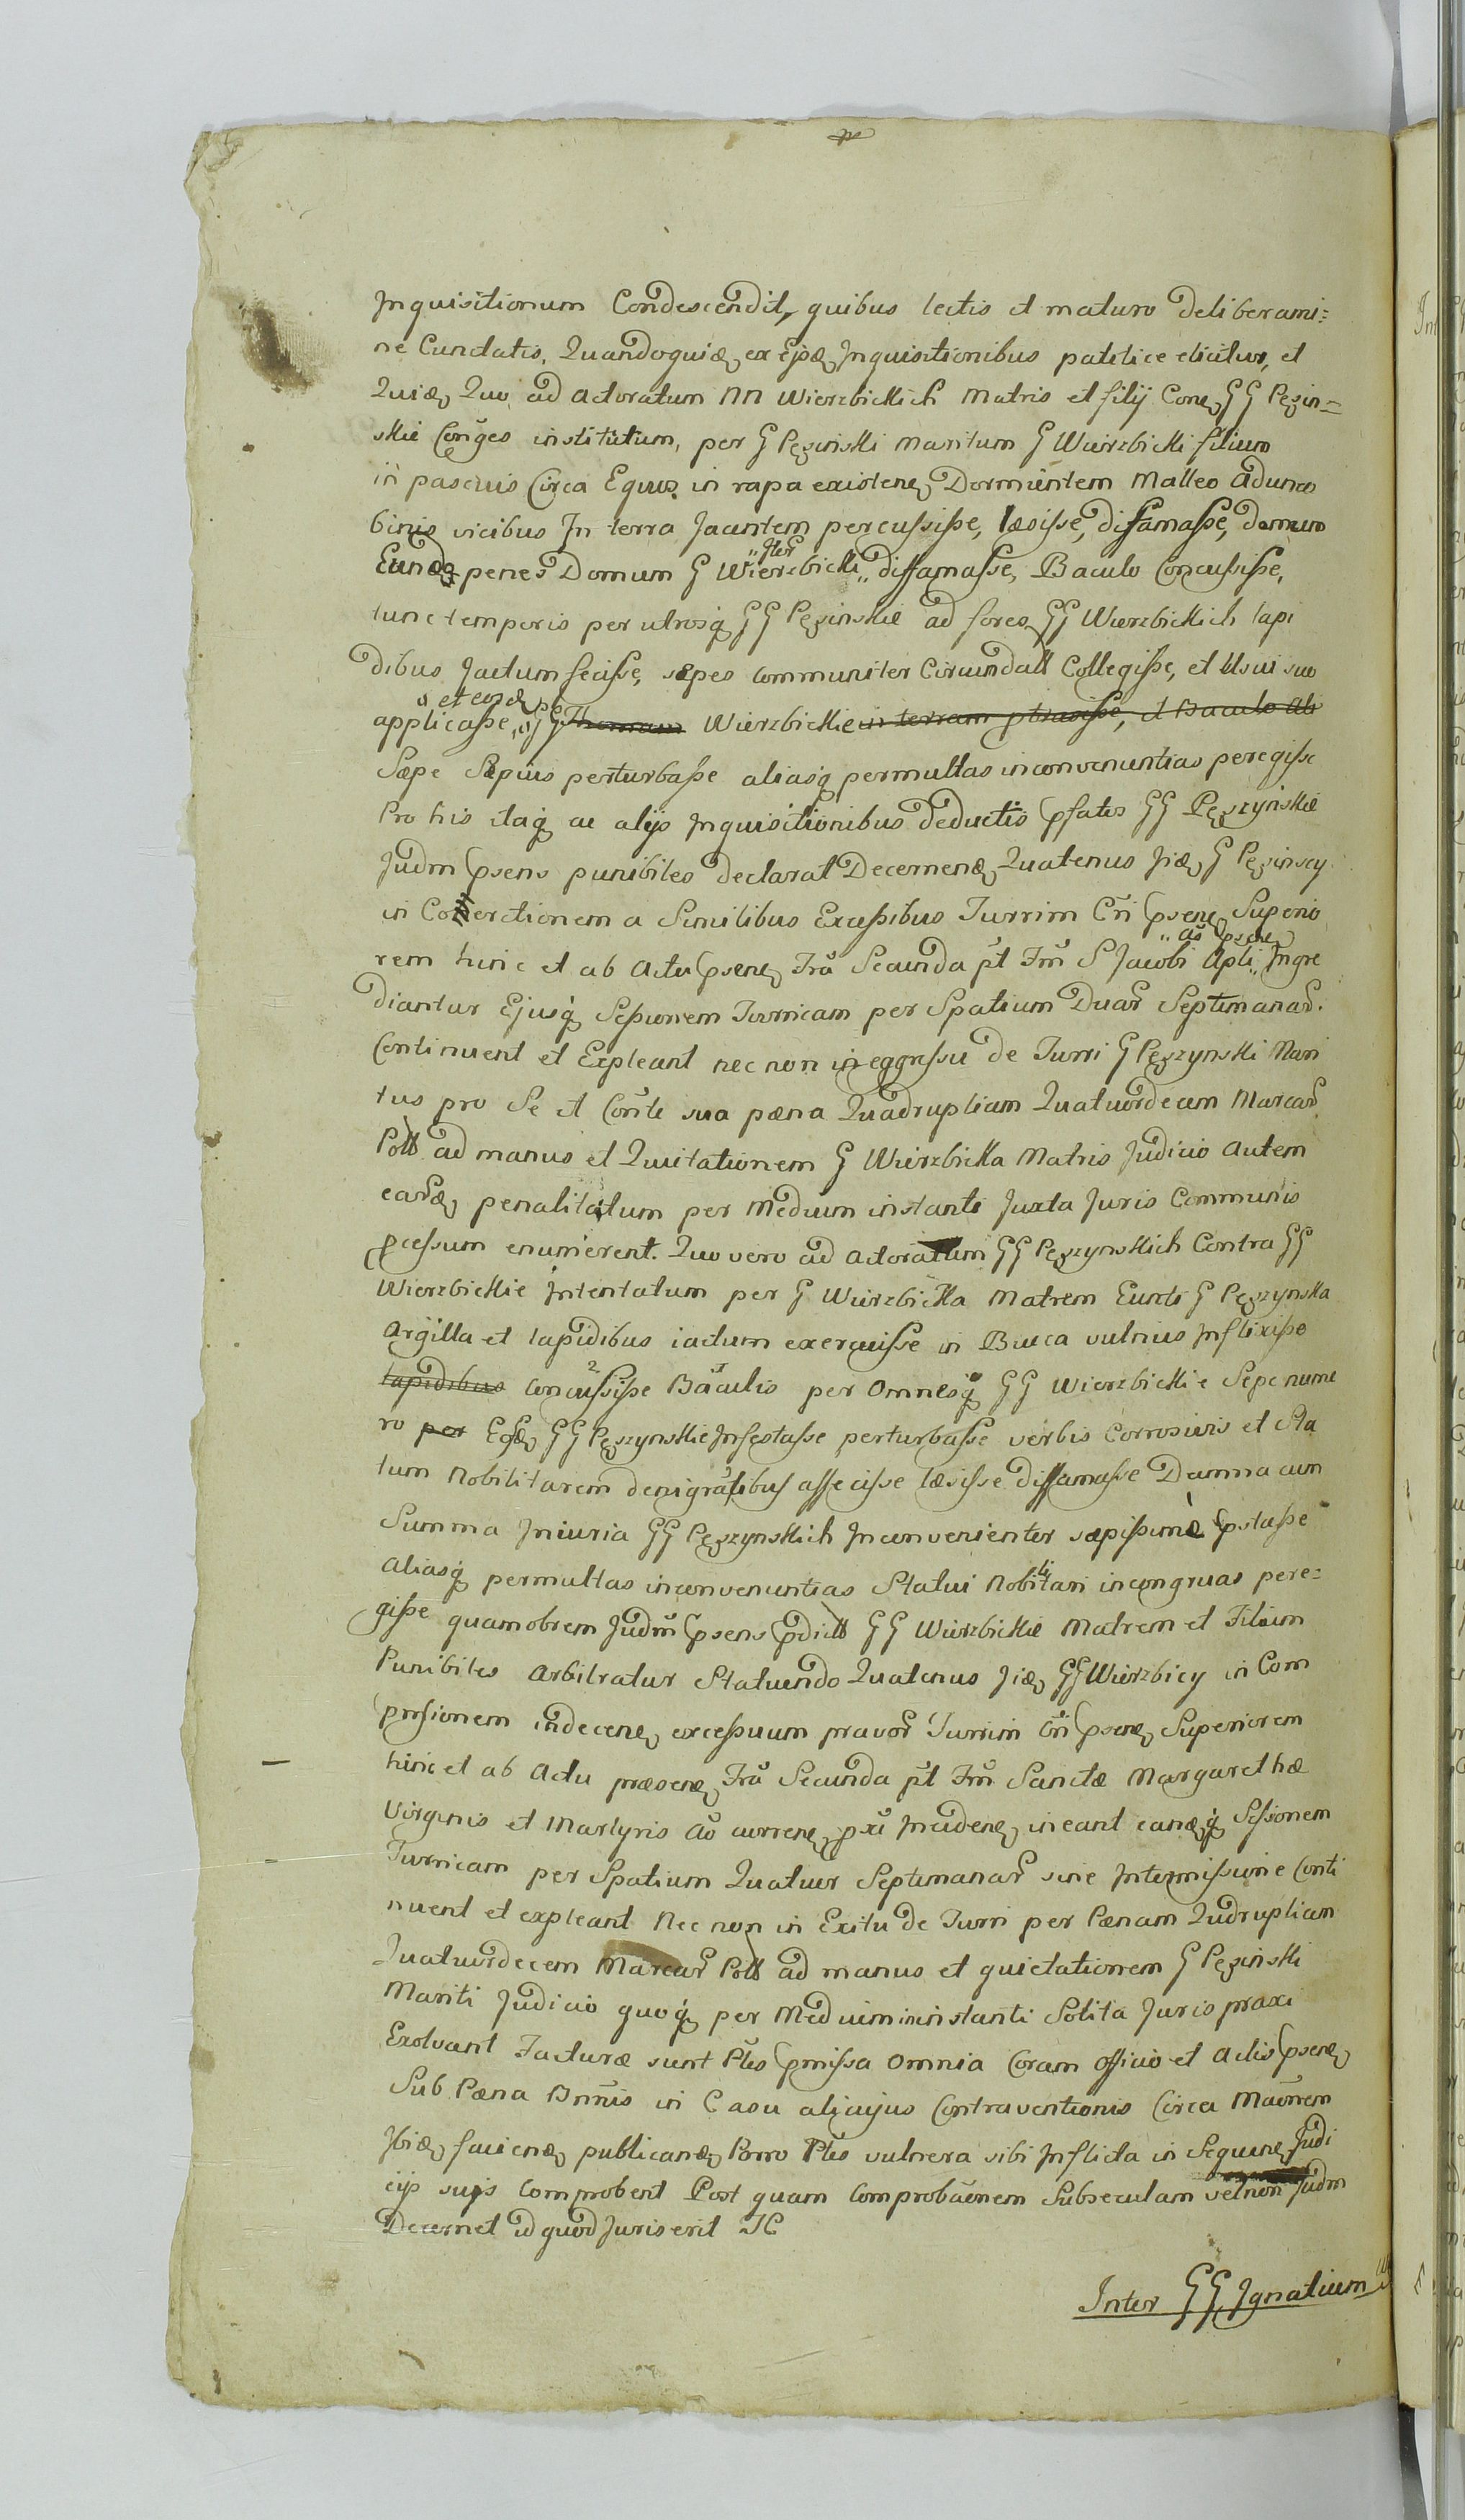 Inquisitionum Condescendit, quibus lectis et maturo deliberami:
ne Cunctatis, Quandoquidẽ ex Ejsdẽ Inquisitionibus patetice elicitur, et
Quidẽ Quo ad Actoratum NN Wierzbickich Matris et filij Contr GG Pęzin=
skie Conges institutum, per G Pęzinski Maritum G Wierzbicki filium
in pascuis Circa Equos in rapa existen Dormientem Malleo Adunco
binis vicibus In terra Jacentem percussisse, læsisse, diffamasse, domum
Eundq penes Domum G Wierzbicki Iter diffamasse, Baculo Concussisse,
tunc temporis per utrosq GG Pęzinskie ad fores GG Wierzbickich lapi
dibus Jactum fecisse, sæpes communiter Circumdatt Collegisse, et Usui suo
applicasse, et eosdẽ GG Thomam Wierzbickie in terram ptraxisse, et Baculo ali
Sæpe Sæpius perturbasse aliasq permultas inconvenientias peregisse
Pro his itaq ac alijs Inquisitionibus deductis pfatos GG Pęszynskie
Judm psens punibiles declarat Decernend Quatenus Jidẽ G Pęzinscy
in Coërctionem a Similibus Excessibus Turrim Cñ psen Superio
rem hinc et ab Actu psen Frã Secunda pt Fm S Jacobi Apli Añ psen Ingre
diantur Ejusq Sessionem Turricam per Spatium Duar Septimanar.
Continuent et Expleant nec non in eggressu de Turri G Pęszynski Mari
tus pro Se et Conte sua pæna Quadrupliam Quatuordecim Marcar
Poll ad manus et Quitationem G Wierzbicka Matris Judicio Autem
earndẽ penalitatum per Medium instanti Juxta Juris Communis
pcessum enumerent. Quo vero ad Actoratum GG Pęszynskich Contra GG
Wierzbickie Intentatum per G Wierzbicka Matrem Eundi G Pęszynska
Argilla et lapidibus iactum exercuisse in Bucca vulnus Inflixisse
lapidibus Concussisse Baculis per Omnesq GG Wierzbickie Sepe nume
ro per Eosdẽ GG Pęszynskie Infestasse perturbasse verbis Corrosivis et Sta
tum Nobilitarem denigrantibus affecisse læsisse diffamasse Damna cum
Summa Iniuria GG Pęszynskich Inconvenienter sæpissime pstasse
aliasq permultas inconvenientias Statui Nobilitari incongruas pere:
gisse quamobrem Judm psens pdictt GG Wierzbickie Matrem et Filium
Punibiles Arbitratur Statuendo Quatenus Jidẽ GG Wierzbicy in Com
prssionem indecen excessuum pravor Turrim Cñ psen Superiorem
hinc et ab Actu præsen Frã Secunda pt Fm Sanctæ Margarethæ
Virginis et Martyris Añ curren pxi Inciden ineant eandq Sessionem
Turricam per Spatium Quatuor Septimanar sine Intermissione Conti
nuent et expleant Nec non in Exitu de Turri per Pænam Qudruplicam
Quatuordecem Marcar Poll ad manus et quietationem G Pęzinski
Mariti Judicio quoq per Medium in instanti Solita Juris praxi
Exolvant Facturæ sunt Ptes pmissa Omnia Coram Officio et Actis psen
Sub Pæna Bnnis in Casu alicujus Contraventionis Circa Maonem
Ibidẽ faciend publicand Porro Ptes vulnera sibi Inflicta in Sequen Judi
cijs suis Comprobent Post quam Comprobaonem Subsecutam vel non Judm
Decernet id quod Juris erit IC
Inter GG Ignatium